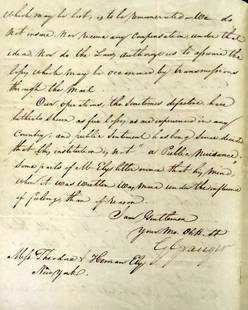 which may be lost, is to be remunerated – We do
not insure nor receive any Compensation under that
idea nor do the Laws authorize us to the
loss which may be occasioned by transmission
through the Mail
Our operations, tho' sometimes defective have
hitherto been as free from as experienced in any
Country; and public Sentiment has long since decided
that this institution is not "a Public Nuisance"
Some parts of Mr Elys letter prove that his mind
when it was written was more under the influence
of feeling than of reason
I am Gentlemen
Your Mo. Ob. St
G Granger
Messrs Theodore & Homan Ely
New York.